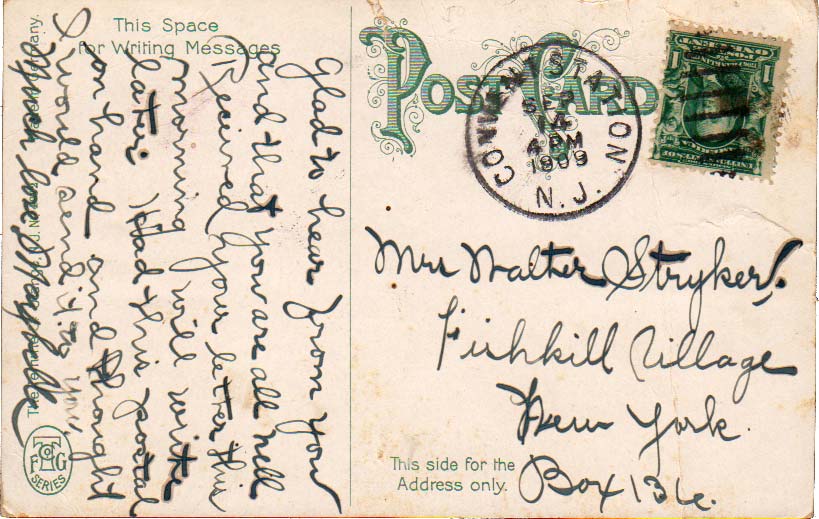 This Space
for Writing Messages
Glad to hear from you
and that you are all well
Received your letter this
morning will write
later. Had this postal
on hand and thought
I would send it to you,
Much love Maybelle
POST CARD
CONVENT STATION
SEP
14
4 PM
1909
N.J.
1
1
Mrs Walter Stryker.
Fishkill Village
New York.
Box 136.
This side for the
Address only.
T Co
F G
SERIES
Germany.